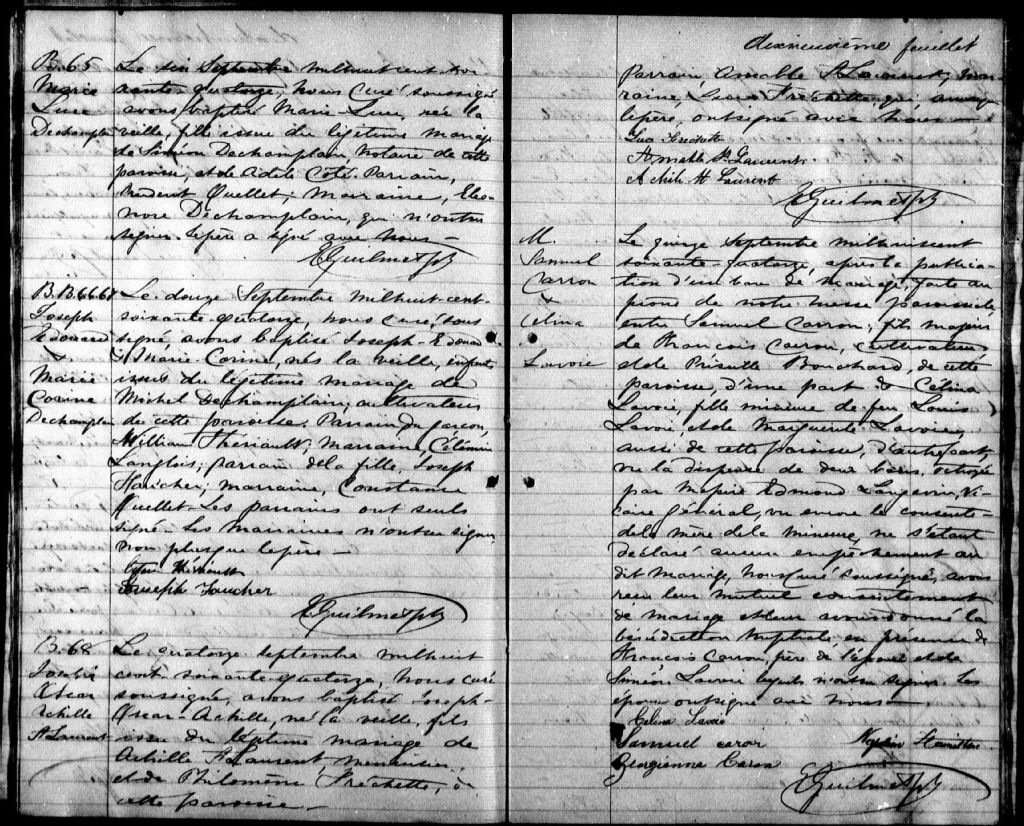 B. 65
Marie
Luce
Dechamplain
Le six Septembre milhuit cent soi
xante-quatorze, nous Curé soussigné
avons baptisé Marie Luce, née la
veille, fille issue du légitime mariage
de Siméon Dechamplain, Notaire de cette
paroisse, et de Adèle Coté. Parrain,
Ouellet; Marraine, Eléo-
nore Dechamplain, qui n'ont su
signer. Le père a signé avec nous —
Guilmet Ptr
B.B. 66.67
Joseph
Edouard
&
Marie
Corine
Dechamplain
Le douze Septembre milhuit-cent-
soixante-quatorze, nous curé, sous
signé, avons baptisé Joseph-Edouard
& Marie-Corine, nés la veille, enfants
issus du légitime mariage de
Michel Dechamplain, cultivateur
de cette paroisse. Parrain du garçon,
William Thériault; marraine, Célémire
Langlois; parrain de la fille, Joseph
Faucher; marraine, Constance
Ouellet. Les parrains ont seuls
signé. Les marraines n'ont su signer,
non plus que le père —
Thériault
Joseph Faucher
Guilmet Ptr
B. 68
Joseph
Oscar
Achille
St Laurent
Le quatorze septembre milhuit
cent soixante-quatorze, nous curé
soussigné, avons baptisé Joseph-
Oscar-Achille, né la veille, fils
issu du légitime mariage de
Achille St Laurent menuisier,
et de Philomène Fréchette, de
cette paroisse. —
dixneuvième feuillet
Parrain Amable St Laurent, mar-
raine, Luce Fréchette, qui, avec
le père, ont signé avec nous —
Luce Frechette
Amable St Laurent
Achile St Laurent
Guilmet Ptr
M.
Samuel
Carron
&
Célina
Lavoie
Le quinze Septembre milhuitcent
soixante-quatorze, après la publica-
tion d'un banc de mariage, faite au
prône de notre messe paroissiale
entre Samuel Carron, fils majeur
de François Carron, cultivateur
et de Priscille Bouchard, de cette
paroisse, d'une part & Célina
Lavoie, fille mineure de feu Louis
Lavoie, et de Marguerite Lavoie,
aussi de cette paroisse, d'autre part,
vu la dispense de deux bans, octroyée
par Messire Edmond Langevin, Vi-
caire Général, vu encore le consente
de la mère de la mineure, ne s'étant
déclaré aucun empêchement au
dit mariage, nous Curé soussigné, avons
reçu leur mutuel consentement
de mariage et leur avons donné la
bénédiction nuptiale en présence de
François Carron, père de l'époux et de
Siméon Lavoie lesquels n'ont su signer. Les
époux ont signé avec nous —
Celina Lavoie
Samuel caron
Georgianna Caron
Guilmet Ptr